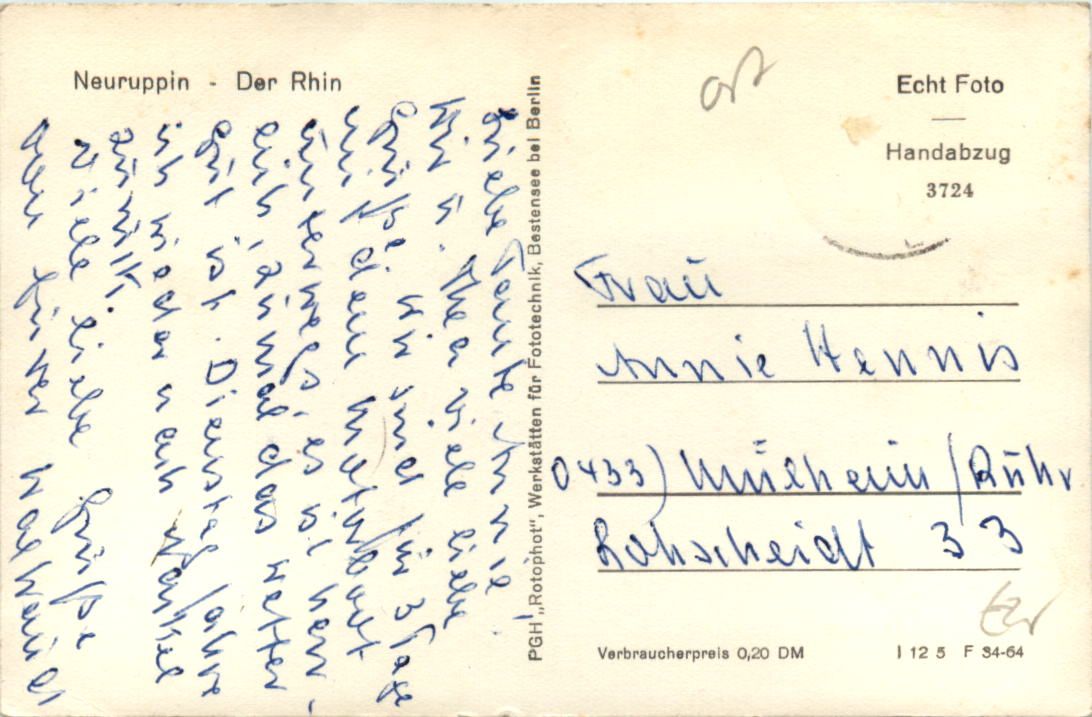 Neuruppin - Der Rhin
Liebe Tante Annie!
Dir u. Thea viele liebe
Grüße. Wir sind für 3 Tage
mit dem Motorboot
unterwegs, es ist herr-
lich, zumal das Wetter
gut ist. Dienstag fahre
ich wieder nach
zurück.
Viele liebe Grüße
Dein Günter
PGH „Rotophot", Werkstätten für Fototechnik, Bestensee bei Berlin
Echt Foto
Handabzug
3724
Frau
Annie Hennis
0433) Mülheim/Ruhr
Lohscheidt 33
Verbraucherpreis 0,20 DM
I 12 5 F 34-64